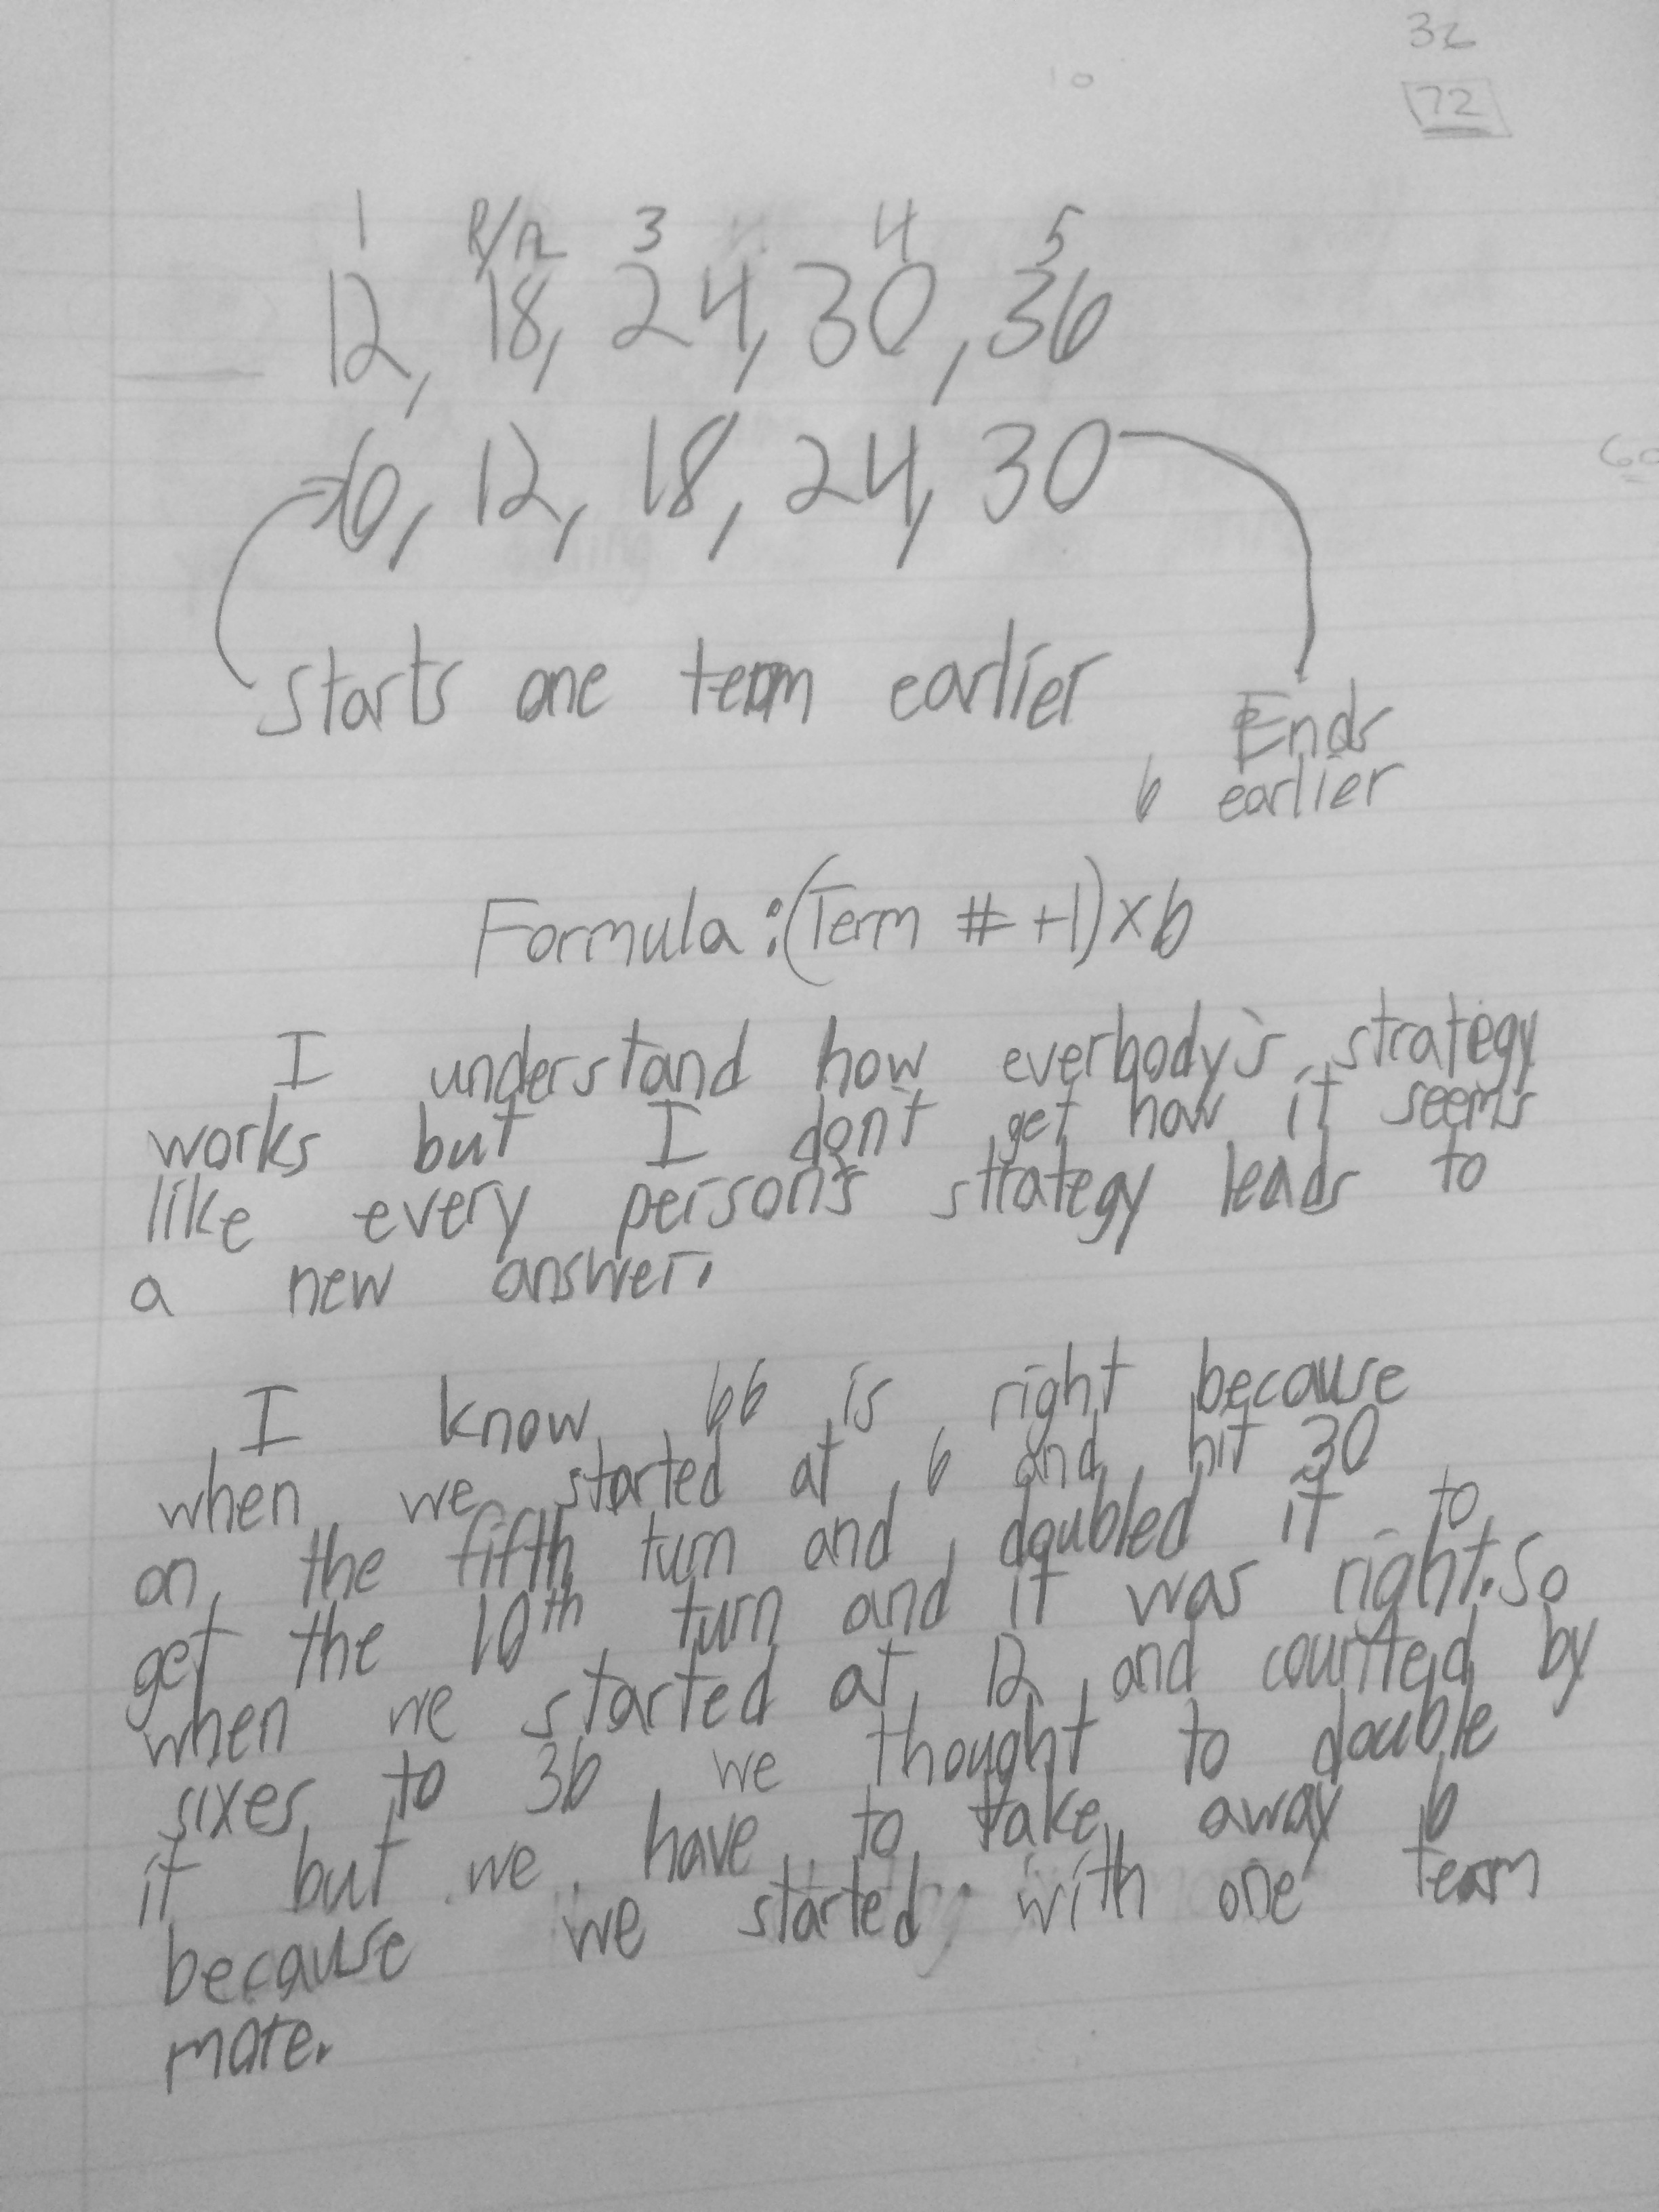 32
10
72
1 3 4 5
12, 18, 24, 30, 36
60
6, 12, 18, 24, 30
Starts one term earlier
Ends
6 earlier
Formula: (Term # +1) x 6
I understand how everbody's strategy
works but I don't get how it seems
like every person's strategy leads to
a new answer.
I know 66 is right because
when we started at 6 and hit 30
on the fifth turn and doubled it to
get the 10th turn and it was right. So
when we started at 12 and counted by
sixes to 36 we thought to double
it but we have to take away 6
because we started with one term
more.